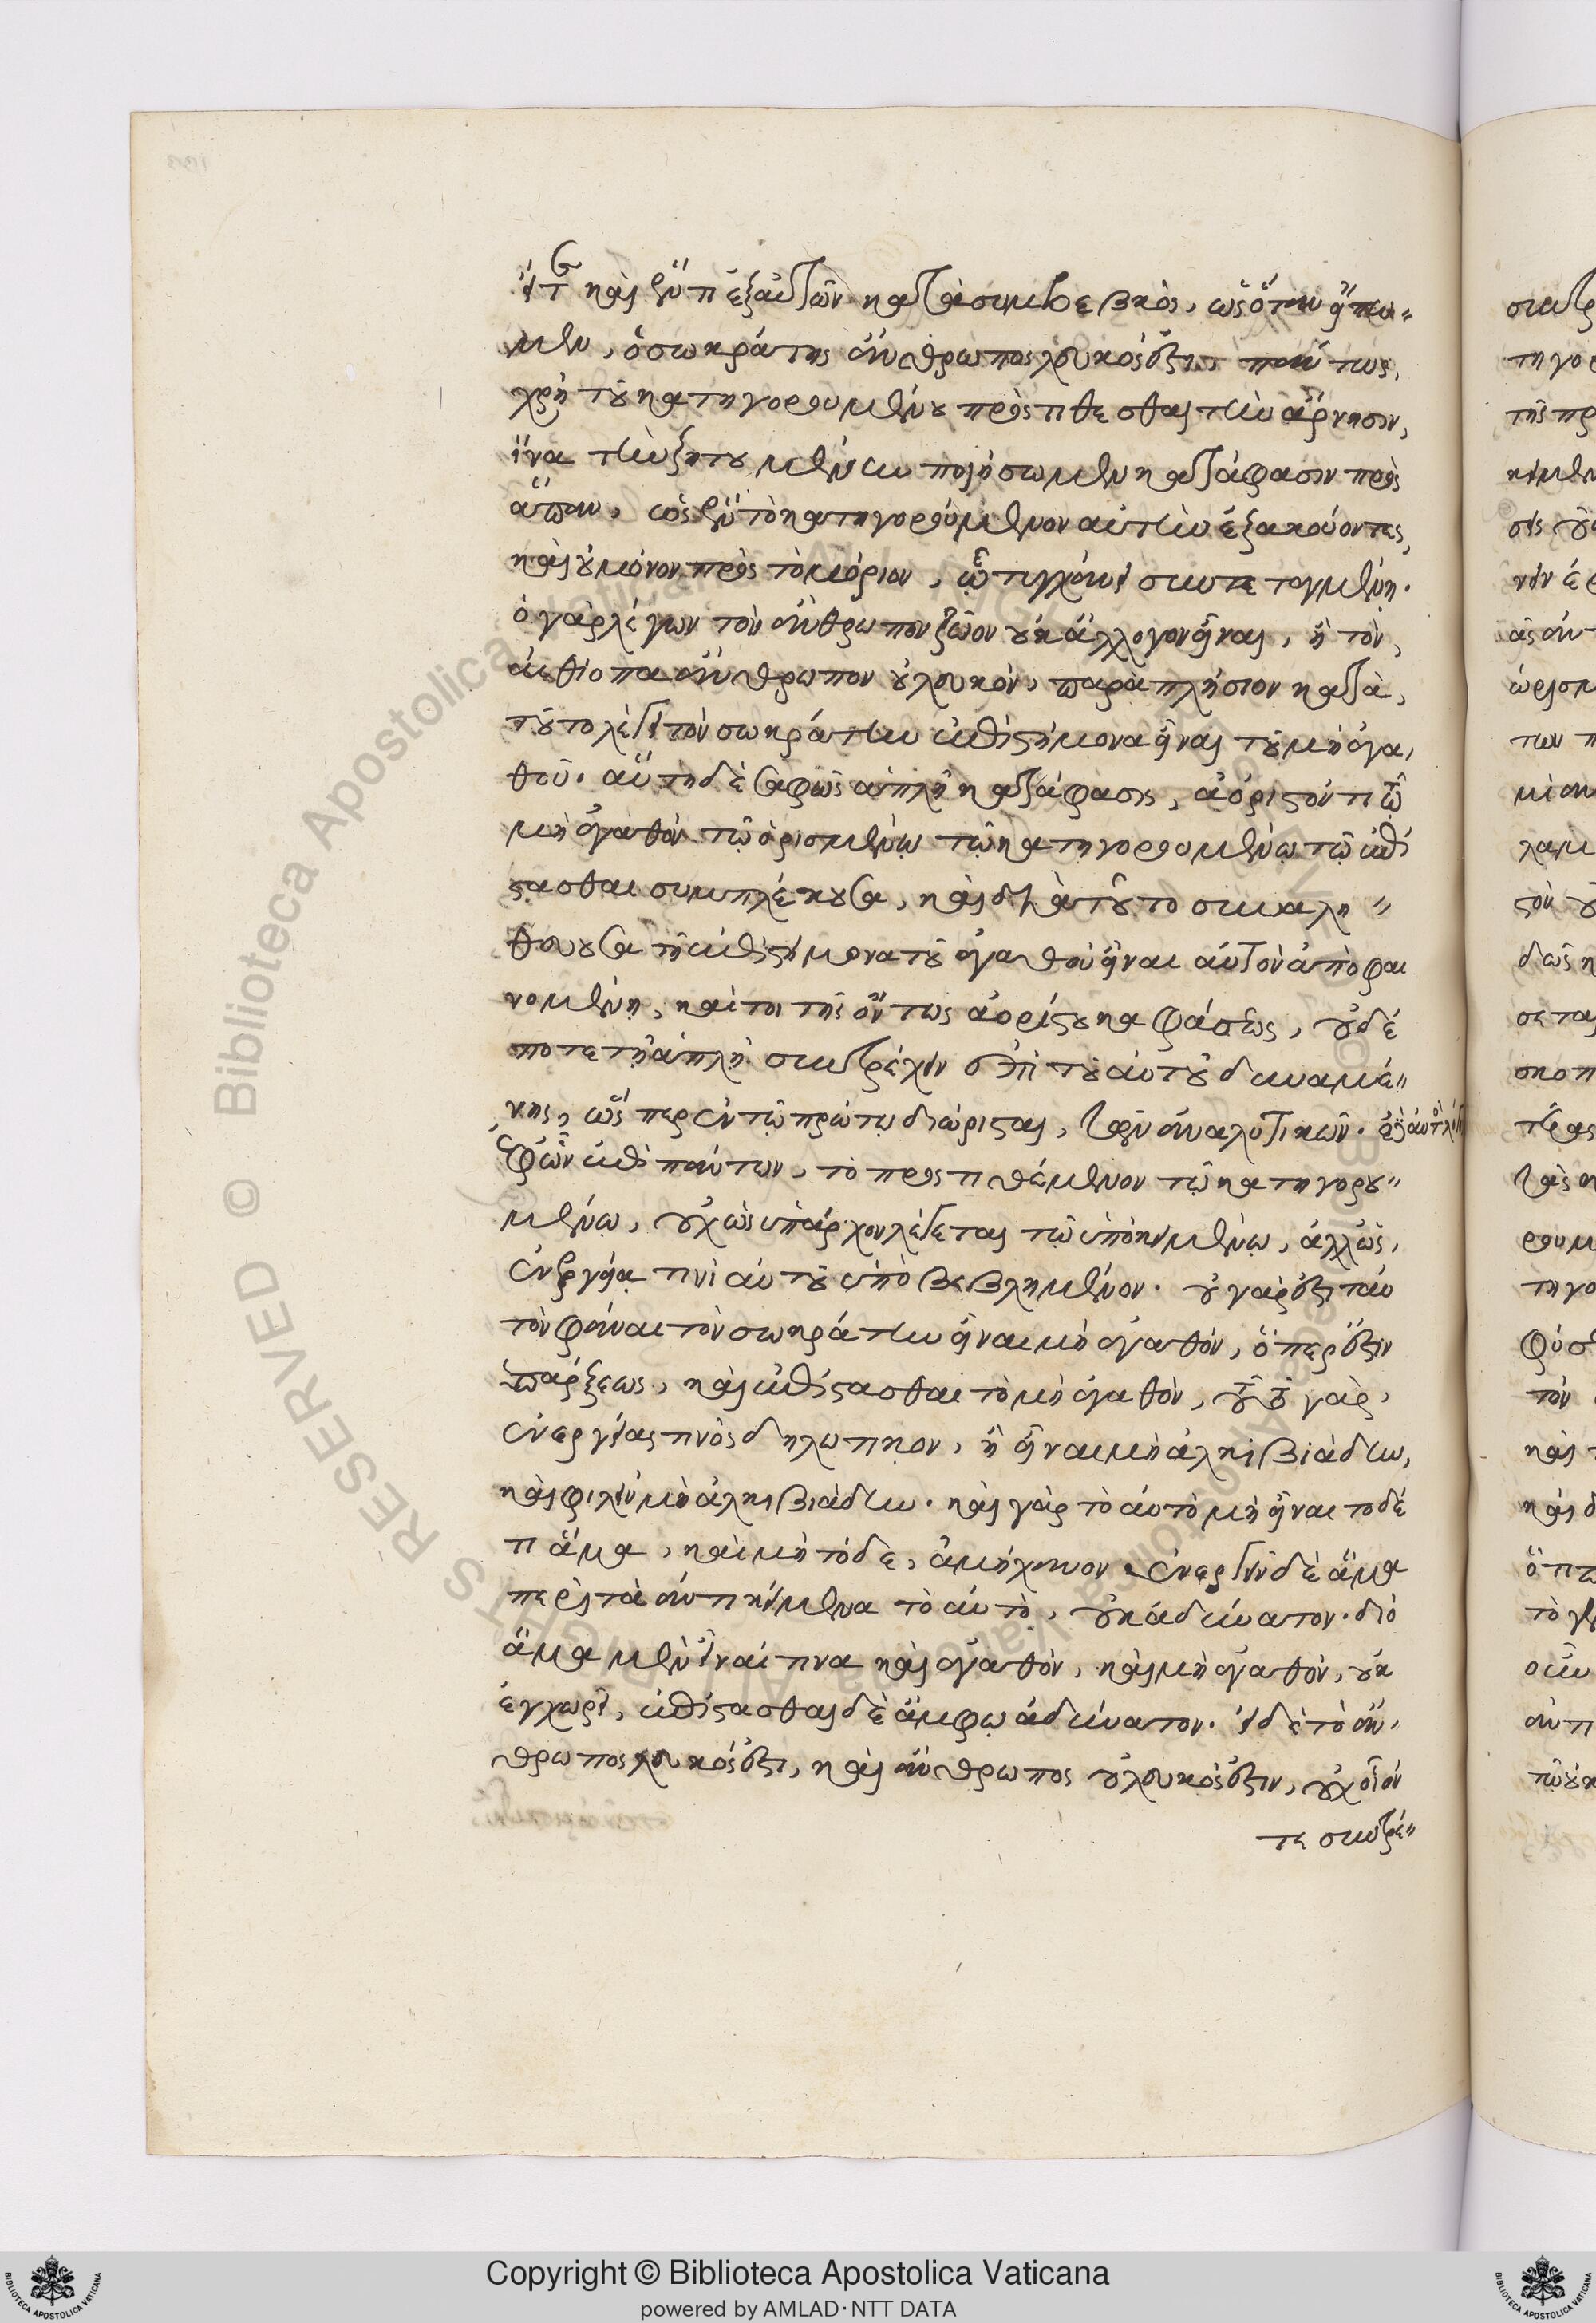 εἴτε καὶ ἕν τι ἐξ αὐτῶν κατὰ συμβεβηκὸς, ὡς ὅταν εἴπω
μεν, ὁ σωκράτης ἄνθρωπος λευκός ἐστι, πάντως,
χρὴ τοῦ κατηγορουμένου προστίθεσθαι τὴν ἄρνησιν,
ἵνα τὴν ζητουμένην ποιήσωμεν κατάφασιν πρὸς
ἅπαν, ὡς ἓν τὸ κατηγορούμενον αὐτὴν ἐξακούοντες,
καὶ οὐ μόνον πρὸς τὸ μόριον, ᾧ τυγχάνει συντεταγμένη.
ὁ γὰρ λέγων τὸν ἄνθρωπον ζῶον οὐκ ἄλογον εἶναι, ἢ τὸν,
αἰθίοπα ἄνθρωπον οὐ λευκὸν, παραπλήσιον κατὰ,
τοῦτο λέγει τὸν σωκράτην ἐπιστήμονα εἶναι τοῦ μὴ ἀγα,
θοῦ. αὕτη δὲ σαφῶς ἁπλῆ κατάφασις, ἀόριστόν τι τῷ
μὴ ἀγαθὸν τῷ ὁρισμένῳ τῷ κατηγορουμένῳ τῷ ἐπί
στασθαι συμπλέκουσα, καὶ διὰ τοῦτο συναλη
θεύουσα τῇ ἐπιστήμονα τοῦ ἀγαθοῦ εἶναι αὐτὸν ἀποφαι
νομένῃ, καίτοι τῆς ὄντως ἀορίστου καφάσεως, οὐδέ
ποτε τῇ ἁπλῇ συντρέχειν ἐπὶ τοῦ αὐτοῦ δυναμέ
νης, ὥσπερ ἐν τῷ πρώτῳ διώρισται, τῶν ἀναλυτικῶν.
ἐπὶ πάντων, τὸ προστιθέμενον τῷ κατηγορου
μένῳ, οὐχ ὡς ὑπάρχον λέγεται τῷ ὑποκειμένῳ, ἀλλ' ὡς,
ἐνεργείᾳ τινὶ αὐτοῦ ὑποβεβλημένον. οὐ γάρ ἐστι ταυ
τὸν φάναι τὸν σωκράτην εἶναι μὴ ἀγαθόν, ὅπερ ἐστὶν
ὑπάρξεως, καὶ ἐπίστασθαι τὸ μὴ ἀγαθὸν, τοῦτο γὰρ,
ἐνεργείας τινὸς δηλωτικον, ἢ εἶναι μὴ ἀλκιβιάδην,
καὶ φιλεῖν μὴ ἀλκιβιάδην. καὶ γὰρ τὸ αὐτὸ μὴ εἶναι τοδέ
τι ἅμα, καὶ μὴ τόδε, ἀμήχανον. ἐνεργεῖν δὲ ἅμα
περὶ τὰ ἀντικείμενα τὸ αὐτὸ, οὐκ ἀδύνατον. διὸ
ἅμα μὲν εἶναί τινα καὶ ἀγαθὸν, καὶ μὴ ἀγαθὸν, οὐκ
ἐγχωρεῖ, ἐπίστασθαι δὲ ἄμφω ἀδύνατον. εἰ δὲ τὸ ἄν
θρωπος λευκός ἐστι, καὶ ἄνθρωπος οὐ λευκὸς ἐστιν, οὐχ οἷόν
τε συντρέ